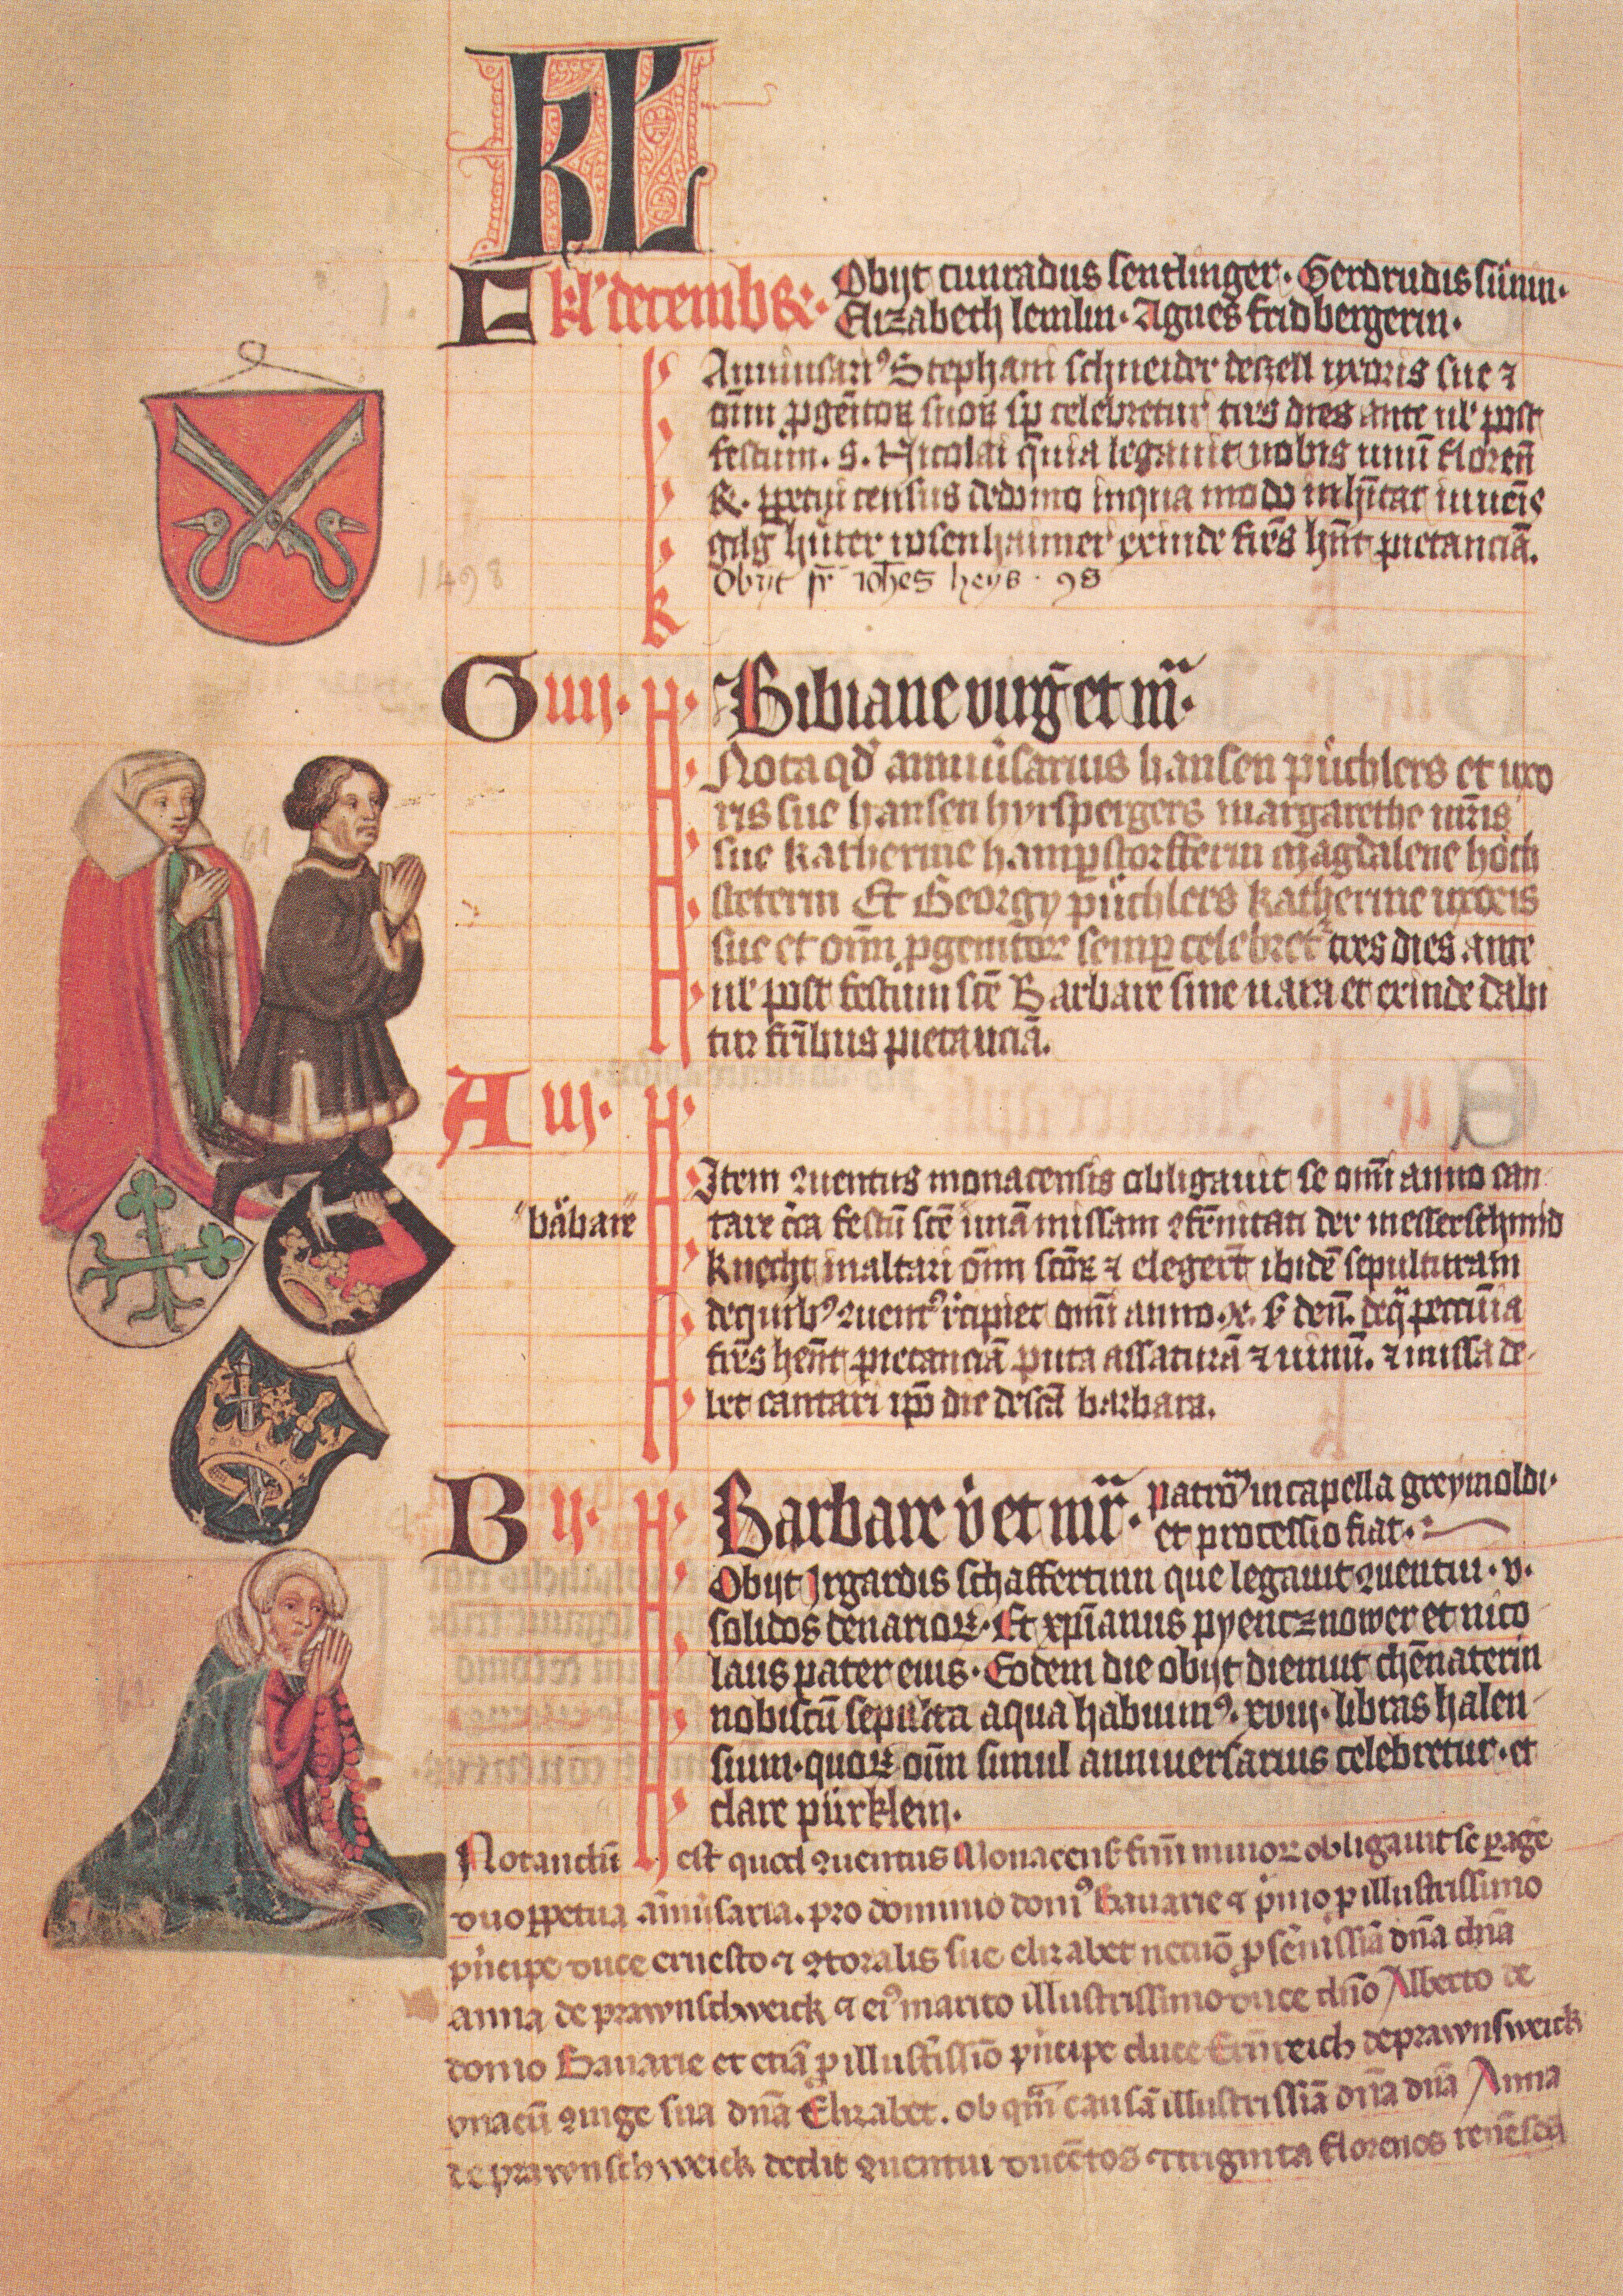 KL
F kl' decembꝛ. Obijt cunradus sentlinger. Gerdrudis
Elizabeth lemlin. Agnes fridbergerin.
Anniuſarı⁹ Stephani ſchneider de zell vxoris ſue ⁊
om̄ p̱genitoꝝ ſuoꝝ ſp̱ celebretur tres dies ante ul' poſt
feſtum. S. Nicolai quia legauit nobis unū floren̄
R. ꝑpetui cenſus de domo in qua modo inhītat
hůter roſenhaimer exinde frēs hn̄t pictanciā.
Obijt fr̄ ioh̄es heys. 98
1498
G iiij. N. Bibiane uirg̅ et m̄.
Nota qd̕ anniuſarius hanſen půchlers et uxo
ris ſue hanſen hyrſpergers margarethe
ſue katherine hampſtorfferin magdalene hoͤch
ſteterin Et Georgÿ půchlers katherine uxoris
ſue et om̄ p̱genitor ſemꝑ celebret' tres dies ante
ul' poſt feſtum ſcē Barbare ſine uara et exinde dabi
tur fr̄ibus pictanciā.
A iij. N.
Item ꝯuentus monacenſis obligauit ſe om̄i anno can
barbare
tare c̄ca feſtū ſcē unā miſſam ꝯfr̄nitati der meſſerſchmid
knecht in altari om̄ ſcōꝝ ⁊ elegerūt ibidē ſepulturam
de quib⁹ ꝯuent⁹ recipiet om̄i anno .x. ß den̄. de q̄ pecunia
frēs hēnt pictanciā puta aſſaturā ⁊ uinū. ⁊ miſſa de
bet cantari ip̄o die de ſcā barbara.
B ij. N. Barbare v̄ et mr̄. patrō in capella greymoldi.
et proceſſio fiat.
Obijt Irgardis ſchaffertinn que legauit ꝯuentui. v.
ſolidos denarioꝝ. Et xp̄ianus pyentznower et nico
laus pater eius. Eodem die obijt diemut chēnaterin
nobiſcū ſepulta a qua habuim⁹. xviij. libras halen
ſium. quoꝝ om̄n ſimul anniuerſarius celebretur. et
clare půrklein.
Notandū eſt quod ꝯuentus Monacenß fr̄m minoꝝ obligauit ſe ꝑage
duo ꝑpetua añiuſaria. pro domino dom⁹ Bauarie ⁊ p̕mo p̱ illuſtriſſimo
p̕ncipe duce erneſto ⁊ ꝯtoralis ſue elizabet necnō p̱ ſēniſſiā dn̄a dn̄a
anna de prawnſchweick ⁊ ei⁹ marito illuſtriſſimo duce dn̄o Alberto de
domo Bauarie et etiā p̱ illuſtiſſiō p̕ncipe duce Ernreich de prawnſweick
vnacū ꝯiuge ſua dn̄a Elizabet. ob qm̄ cauſā illuſtriſſiā dn̄a dn̄a Anna
de prawnſchweick dedit ꝯuentui ducētos ⁊ triginta florenos
61
62